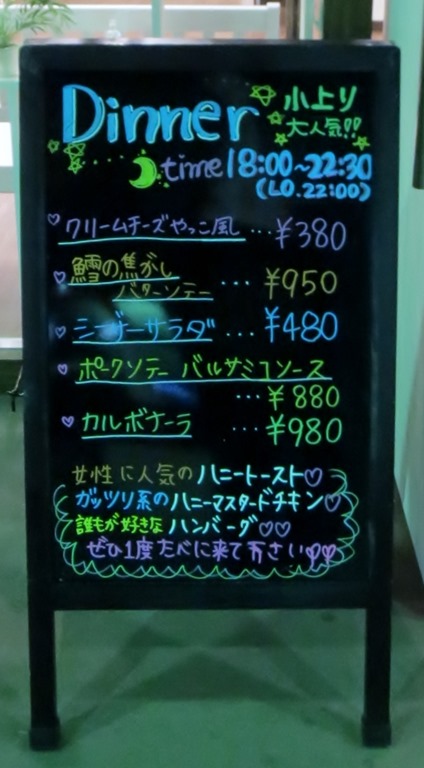 Dinner
小上り
大人気!!
time 18:00~22:30
(L.O. 22:00)
クリームチーズやっこ風 … ¥380
鱈の焦がし
バターソテー … ¥950
シーザーサラダ … ¥480
ポークソテー バルサミコソース
… ¥880
カルボナーラ … ¥980
女性に人気の ハニートースト♡
ガッツリ系の ハニーマスタードチキン♡
誰もが好きな ハンバーグ♡♡
ぜひ1度たべに来て下さい♡♡